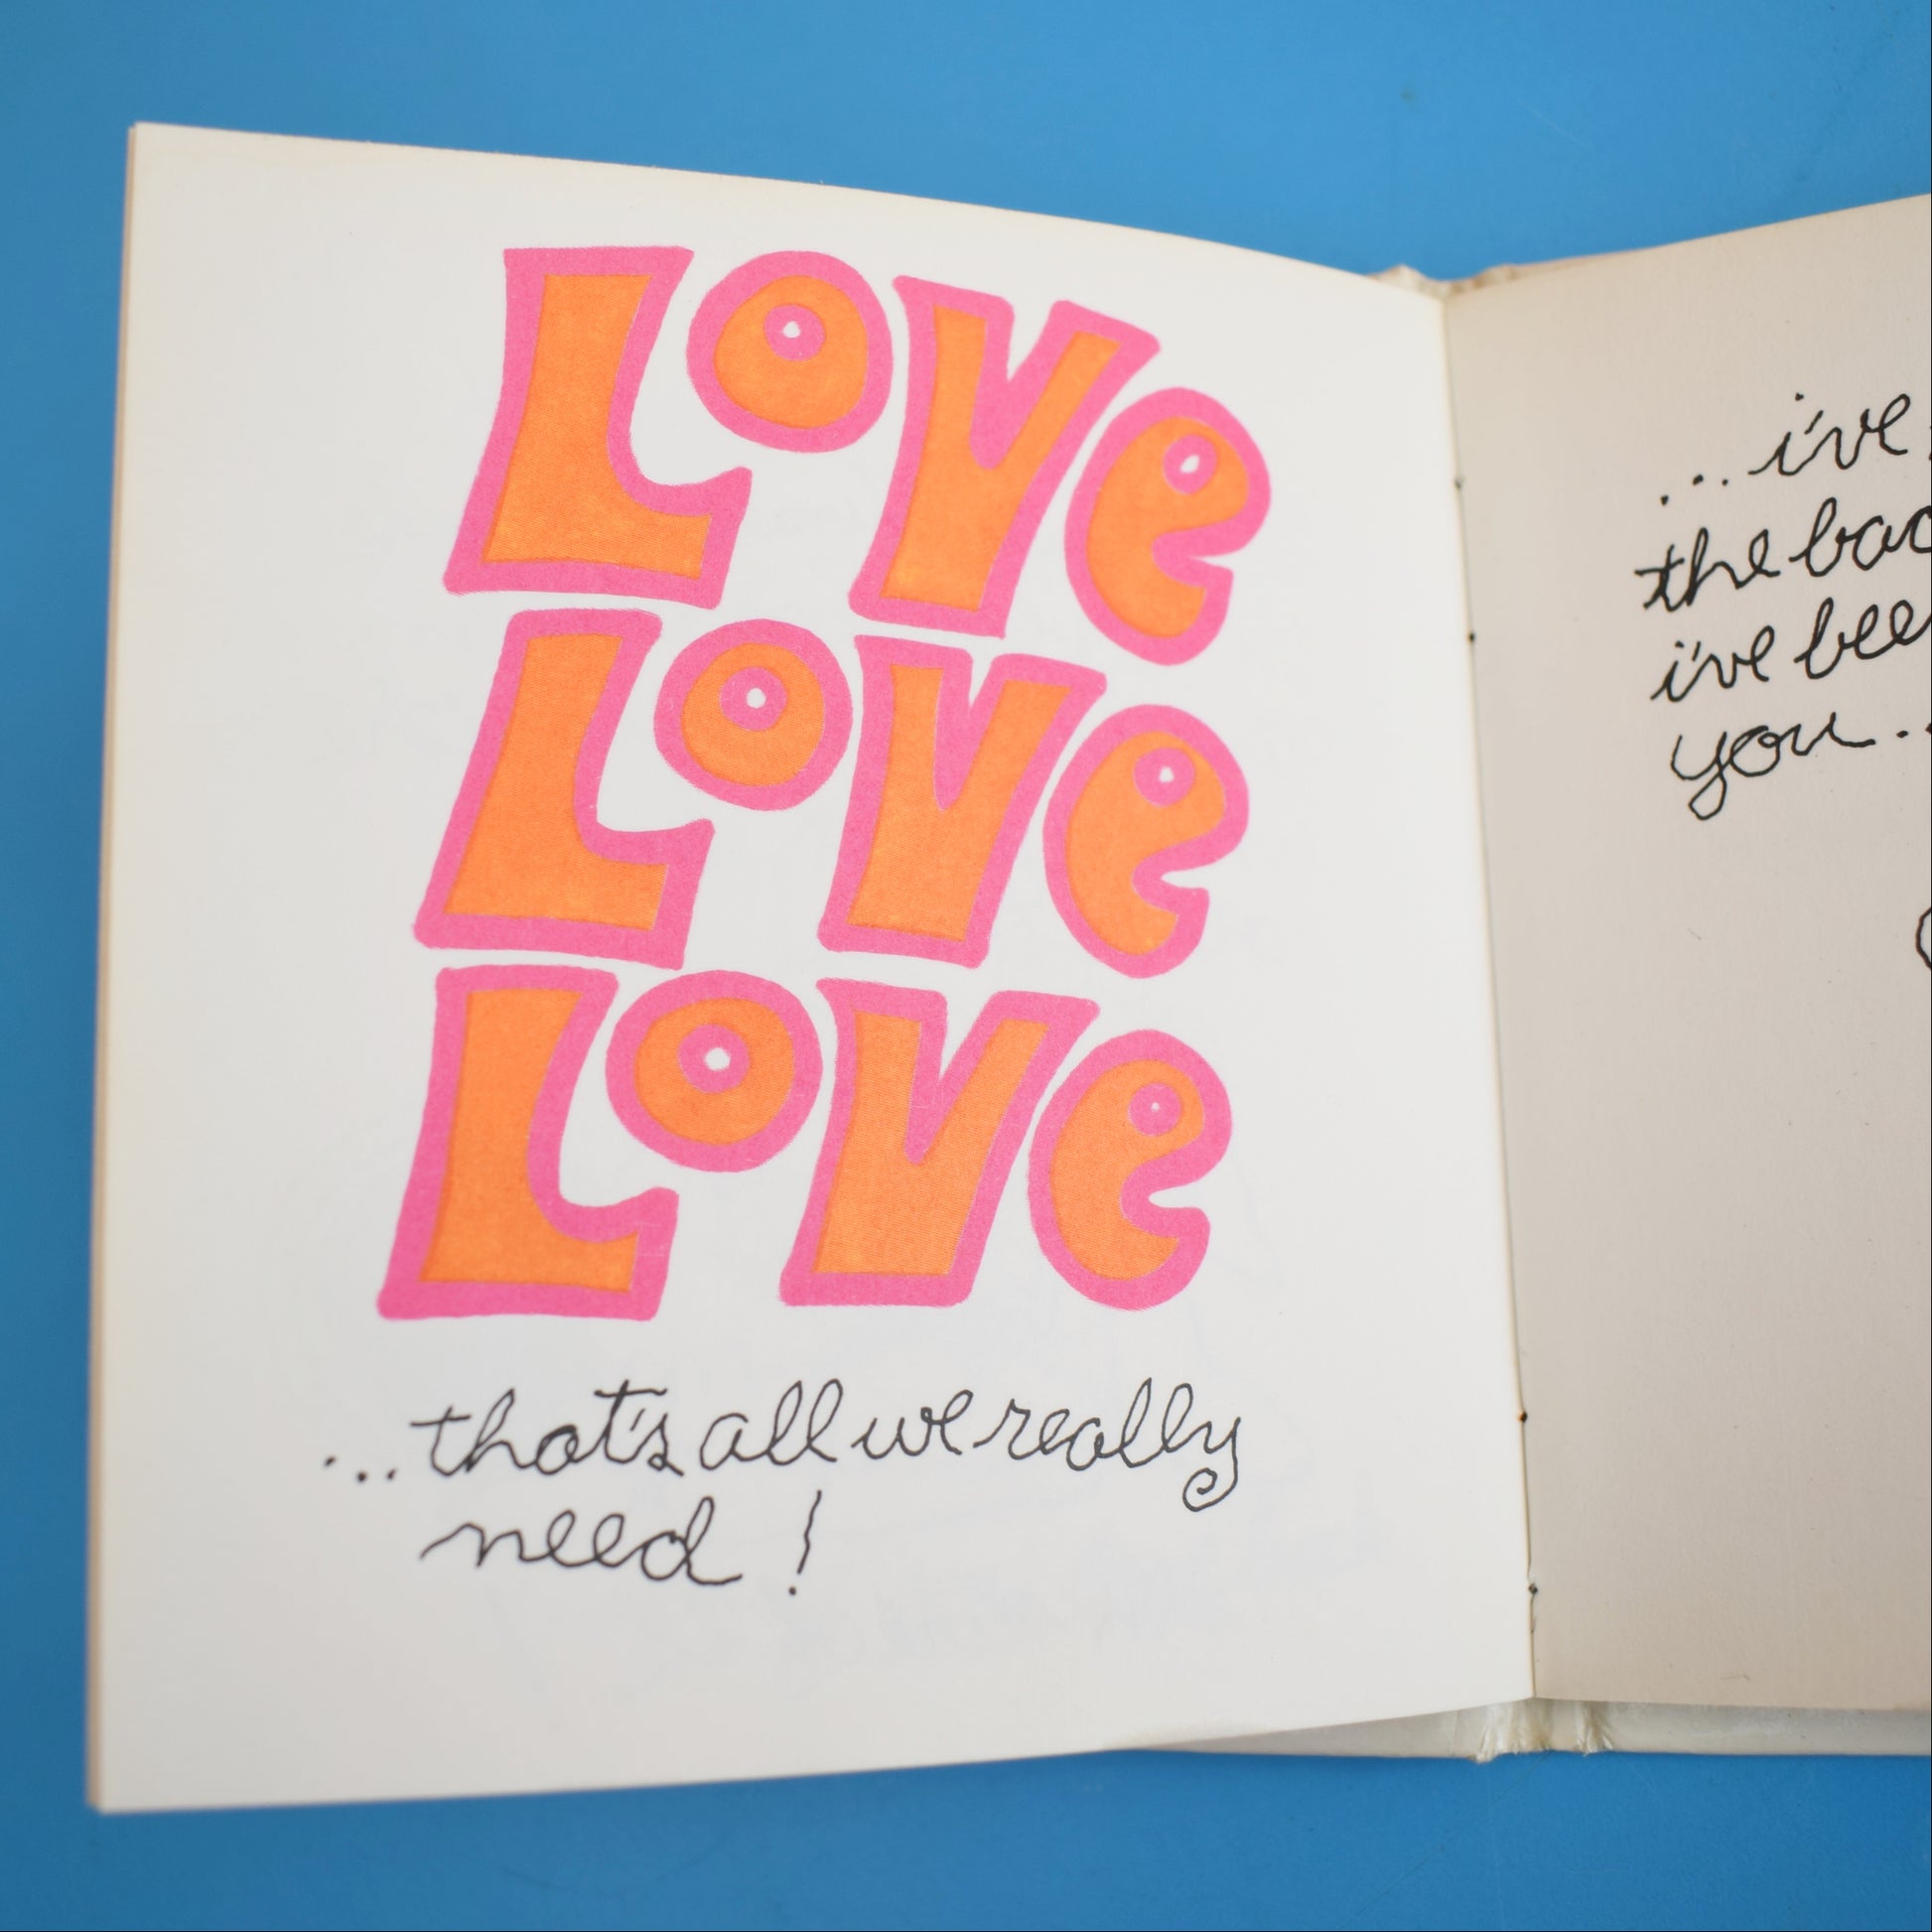 Love
Love
Love
...that's all we really
need!
...i've
the
i've
you...